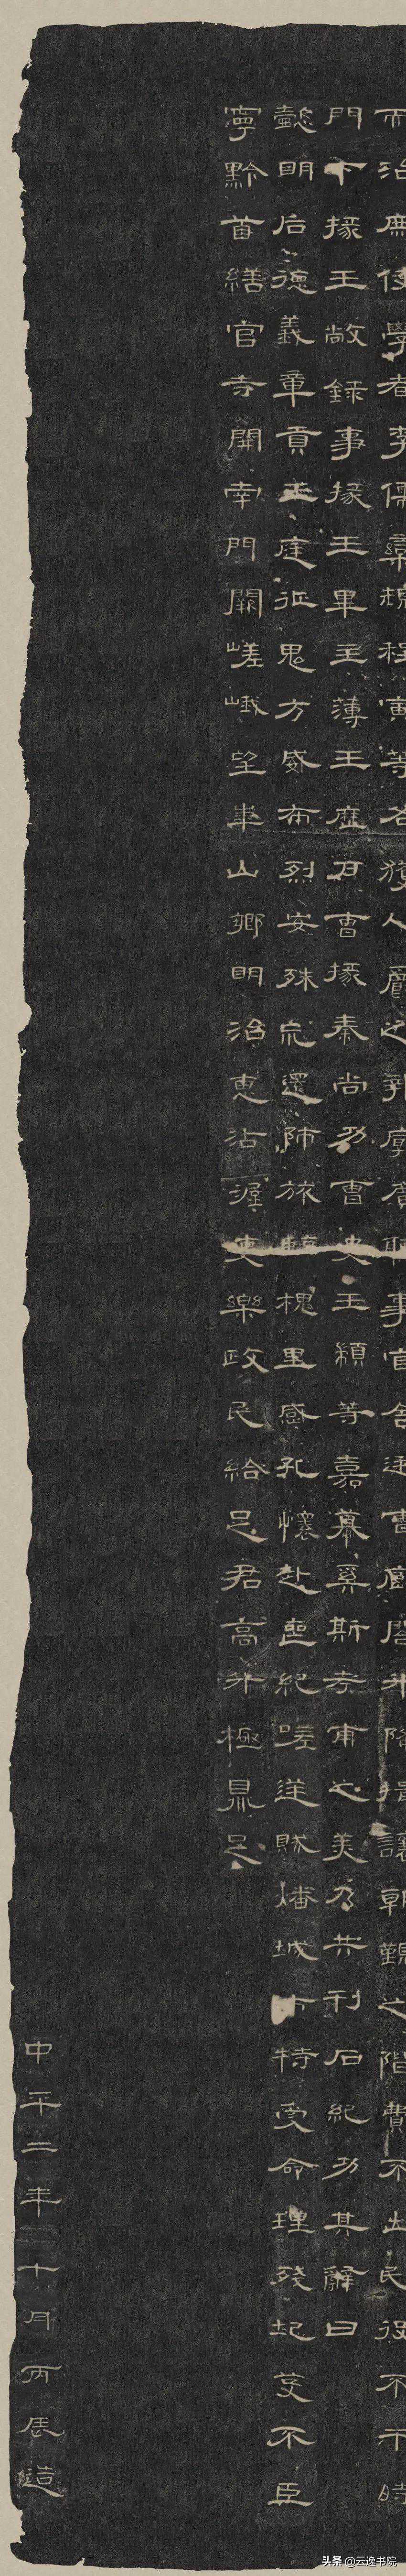 而治庾使學者李儒欒規程寅等各獲人爵之報廓廣聽事官舍廷曹廊閤升降揖讓朝覲之階費不出民役不干時
門下掾王敞錄事掾王畢主薄王歷戶曹掾秦尚功曹史王顓等嘉慕奚斯考甫之美乃共刊石紀功其辭曰
懿明后德義章貢王庭征鬼方威布烈安殊荒還師旅臨槐里感孔懷赴喪紀嗟逆賊燔城市特受命理殘圮芟不臣
寧黔首繕官寺開南門闕嵯峨望華山鄉明治惠沾渥吏樂政民給足君高升極鼎足
中平二年十月丙辰造
头条 @云逸书院